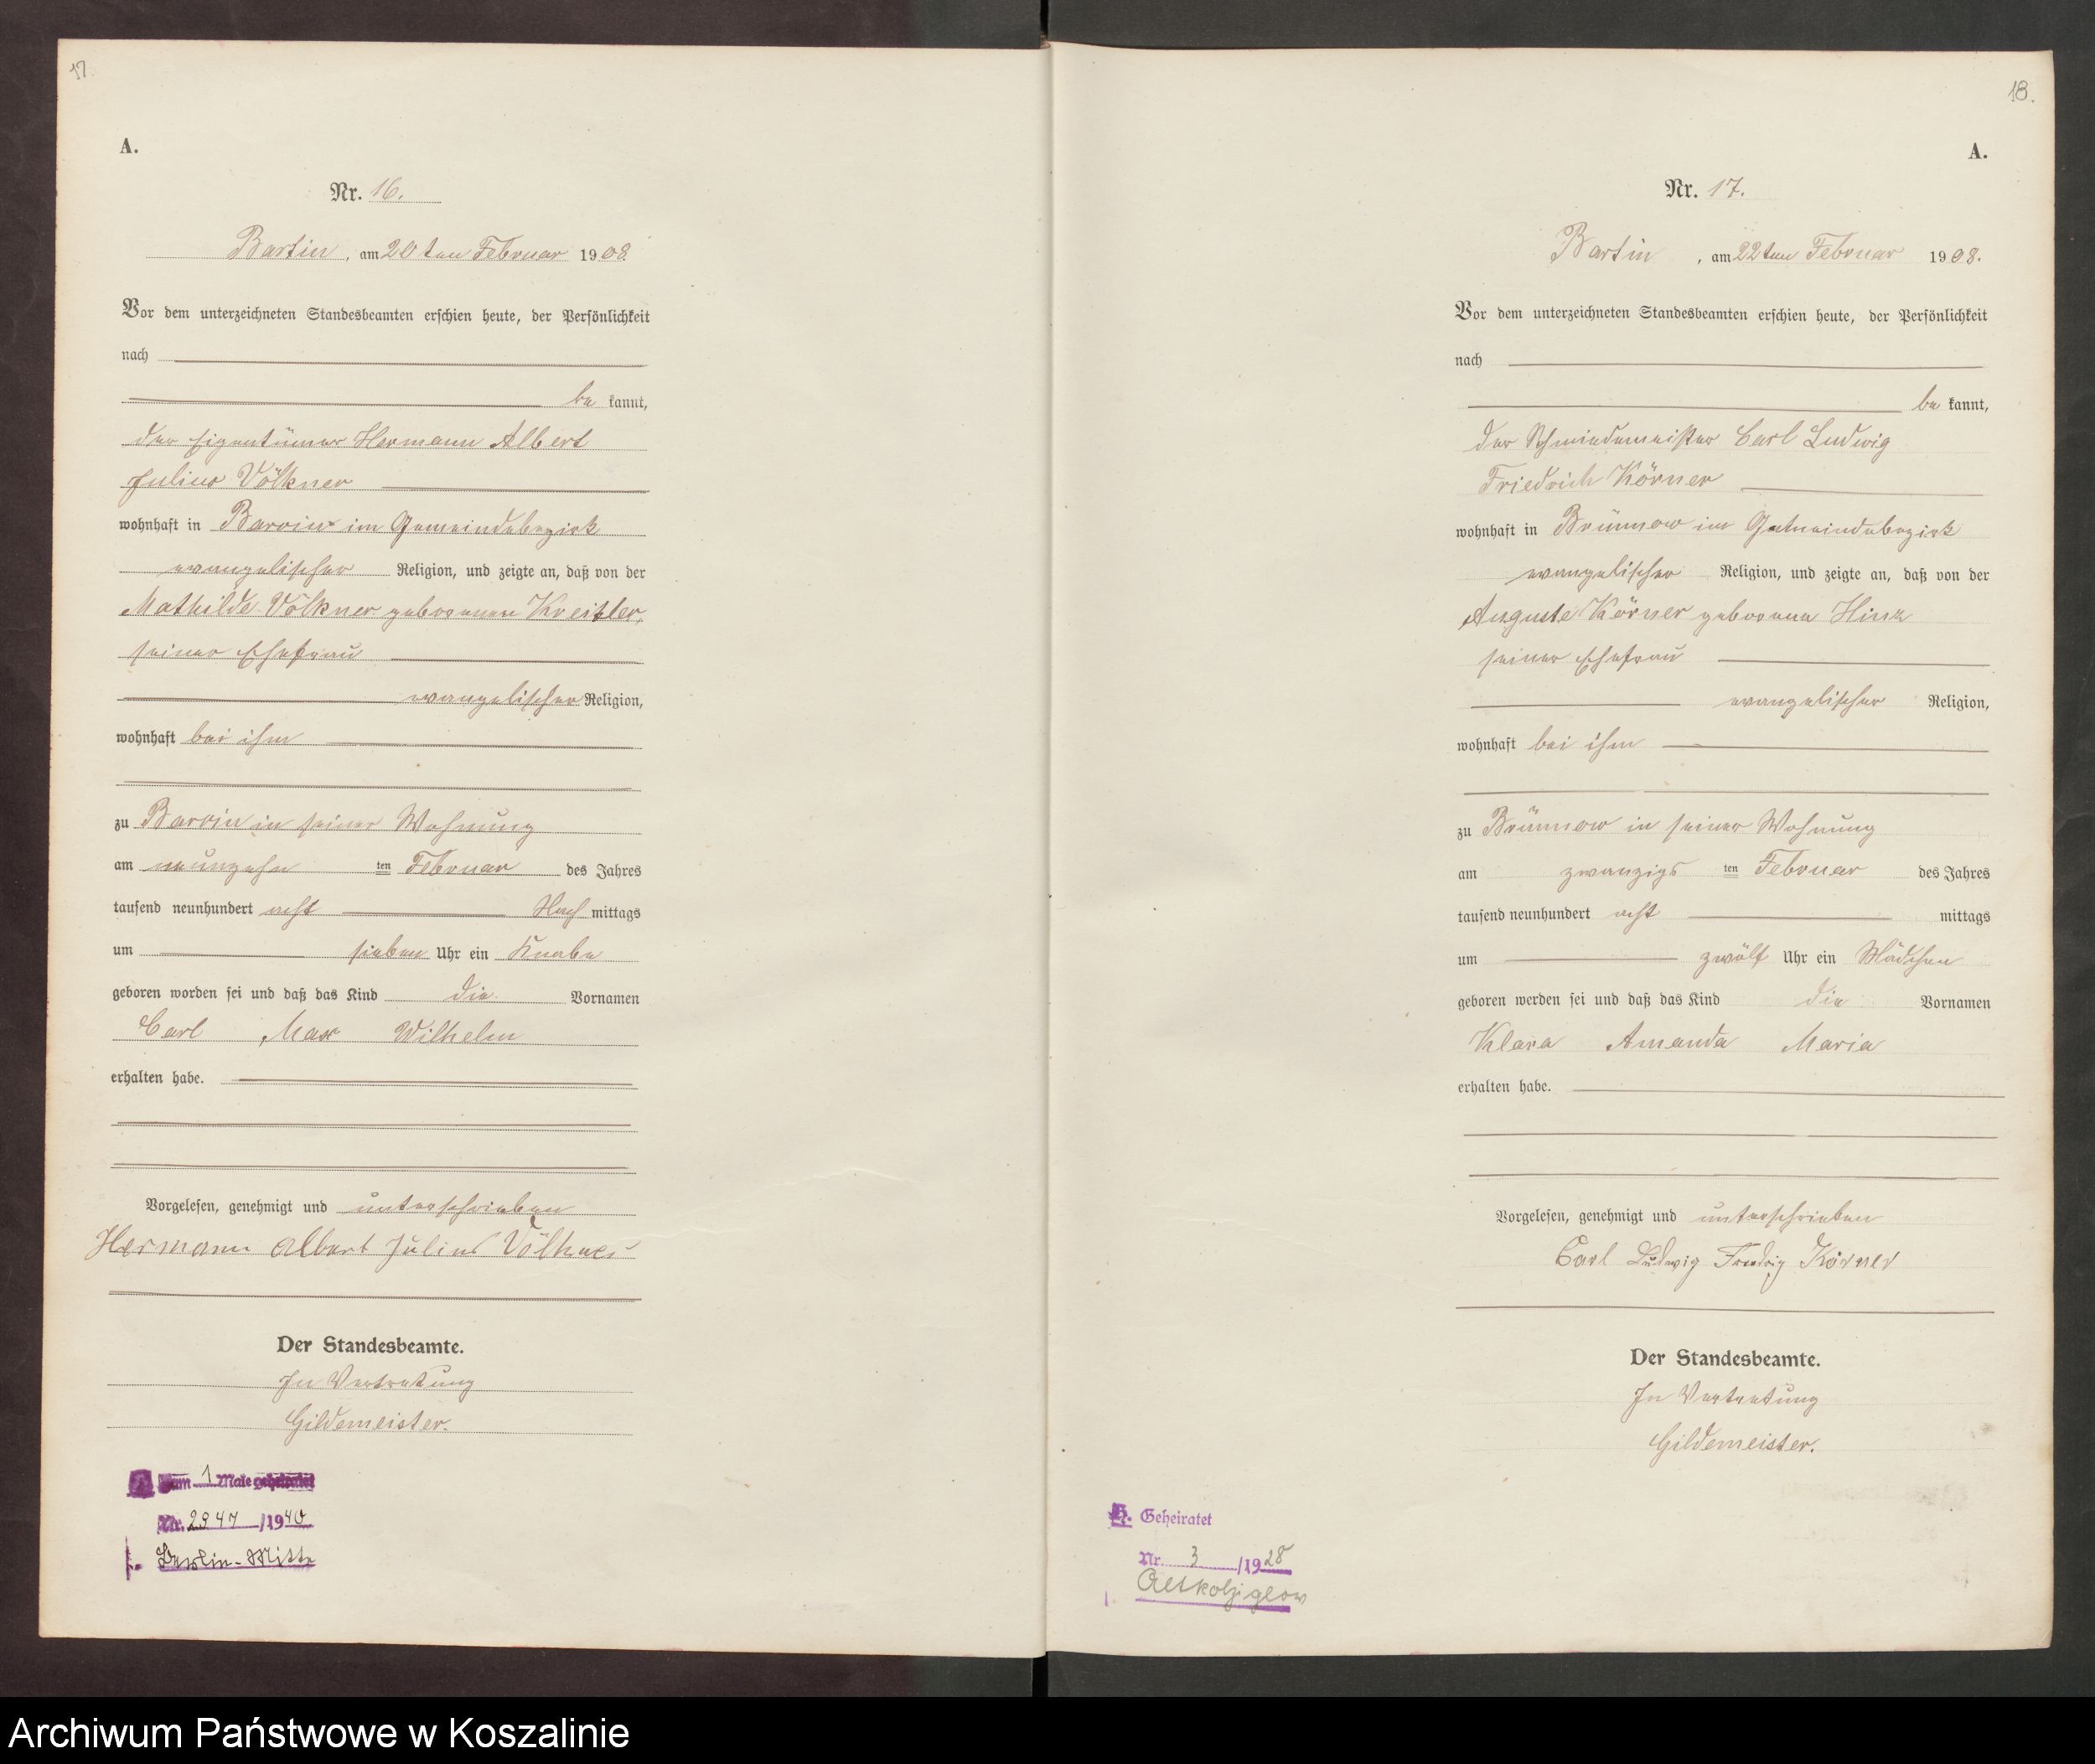 17.
A.
Nr. 16.
Bartin, am 20ten Februar 1908.
Vor dem unterzeichneten Standesbeamten erschien heute, der Persönlichkeit
nach
be kannt,
der Eigentümer Hermann Albert
Julius Völkner
wohnhaft in Barvin im Gemeindebezirk
evangelischer Religion, und zeigte an, daß von der
Mathilde Völkner geborenen Kreitler,
seiner Ehefrau
evangelischer Religion,
wohnhaft bei ihm
zu Barvin in seiner Wohnung
am neunzehn ten Februar des Jahres
tausend neunhundert acht Nach mittags
um sieben Uhr ein Knabe
geboren worden sei und daß das Kind die Vornamen
Carl Max Wilhelm
erhalten habe.
Vorgelesen, genehmigt und unterschrieben
Hermann Albert Julius Völkner
Der Standesbeamte.
In Vertretung
Gildemeister.
zum 1 Male geheiratet
Nr. 2947 /1940
Berlin-Mitte
18.
A.
Nr. 17.
Bartin, am 22ten Februar 1908.
Vor dem unterzeichneten Standesbeamten erschien heute, der Persönlichkeit
nach
be kannt,
der Schmiedemeister Carl Ludwig
Friedrich Körner
wohnhaft in Brünnow im Gemeindebezirk
evangelischer Religion, und zeigte an, daß von der
Auguste Körner geborene Hinz
seiner Ehefrau
evangelischer Religion,
wohnhaft bei ihm
zu Brünnow in seiner Wohnung
am zwanzigs ten Februar des Jahres
tausend neunhundert acht mittags
um zwölf Uhr ein Mädchen
geboren worden sei und daß das Kind die Vornamen
Klara Amanda Maria
erhalten habe.
Vorgelesen, genehmigt und unterschrieben
Carl Ludwig Friedrig Körner
Der Standesbeamte.
In Vertretung
Gildemeister.
Geheiratet
Nr. 3 /1928
Altkolziglow
Archiwum Państwowe w Koszalinie